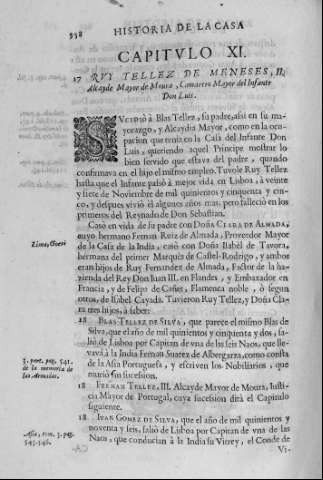 998 HISTORIA DE LA CASA
CAPITVLO XI.
17 RVY TELLEZ DE MENESES, II,
Alcayde Mayor de Moura, Camarero Mayor del Infante
Don Luis.
SVCEDIÒ à Blas Tellez, su padre, assi en su ma-
yorazgo, y Alcaydia Mayor, como en la ocu-
pacion que tenia en la Casa del Infante Don
Luis, queriendo aquel Principe mostrar lo
bien servido que estava del padre, quando
confirmava en el hijo el mismo empleo. Tuvole Ruy Tellez
hasta que el Infante passò à mejor vida, en Lisboa, à veinte
y siete de Noviembre de mil quinientos y cinquenta y cin-
co, y despues viviò el algunos años mas, pero falleciò en los
primeros del Reynado de Don Sebastian.
Casò en vida de su padre con DOÑA CLARA DE ALMADA,
cuyo hermano Fernan Ruiz de Almada, Proveedor Mayor
de la Casa de la India, casò con Doña Isabel de Tavora,
hermana del primer Marquès de Castel-Rodrigo, y ambos
eran hijos de Ruy Fernandez de Almada, Factor de la ha-
zienda del Rey Don Iuan III. en Flandes, y Embaxador en
Francia, y de Felipa de Flamenca noble, ò segun
otros, de Isabel Cayada. Tuvieron Ruy Tellez, y Doña Cla-
ra tres hijos, à saber:
18 BLAS TELLEZ DE SILVA, que parece el mismo Blas de
Silva, que el año de mil quinientos y cinquenta y dos, sa-
liò de Lisboa por Capitan de vna de las seis Naos, que lle-
vavà à la India Fernan Suarez de Albergaria, como consta
de la Asia Portuguesa, y escriven los Nobiliarios, que
muriò sin sucession.
3. part. pag. 541.
de la memoria de
las Armadas.
18 FERNAN TELLEZ, III. Alcayde Mayor de Moura, Iusti-
cia Mayor de Portugal, cuya sucession dirà el Capitulo
siguiente.
18 IVAN GOMEZ DE SILVA, que el año de mil quinientos y
noventa y seis, saliò de Lisboa por Capitan de vna de las
Naos, que conducian à la India su Virrey, el Conde de
Asia, tom. 3. pag.
545. 546.
Vi-